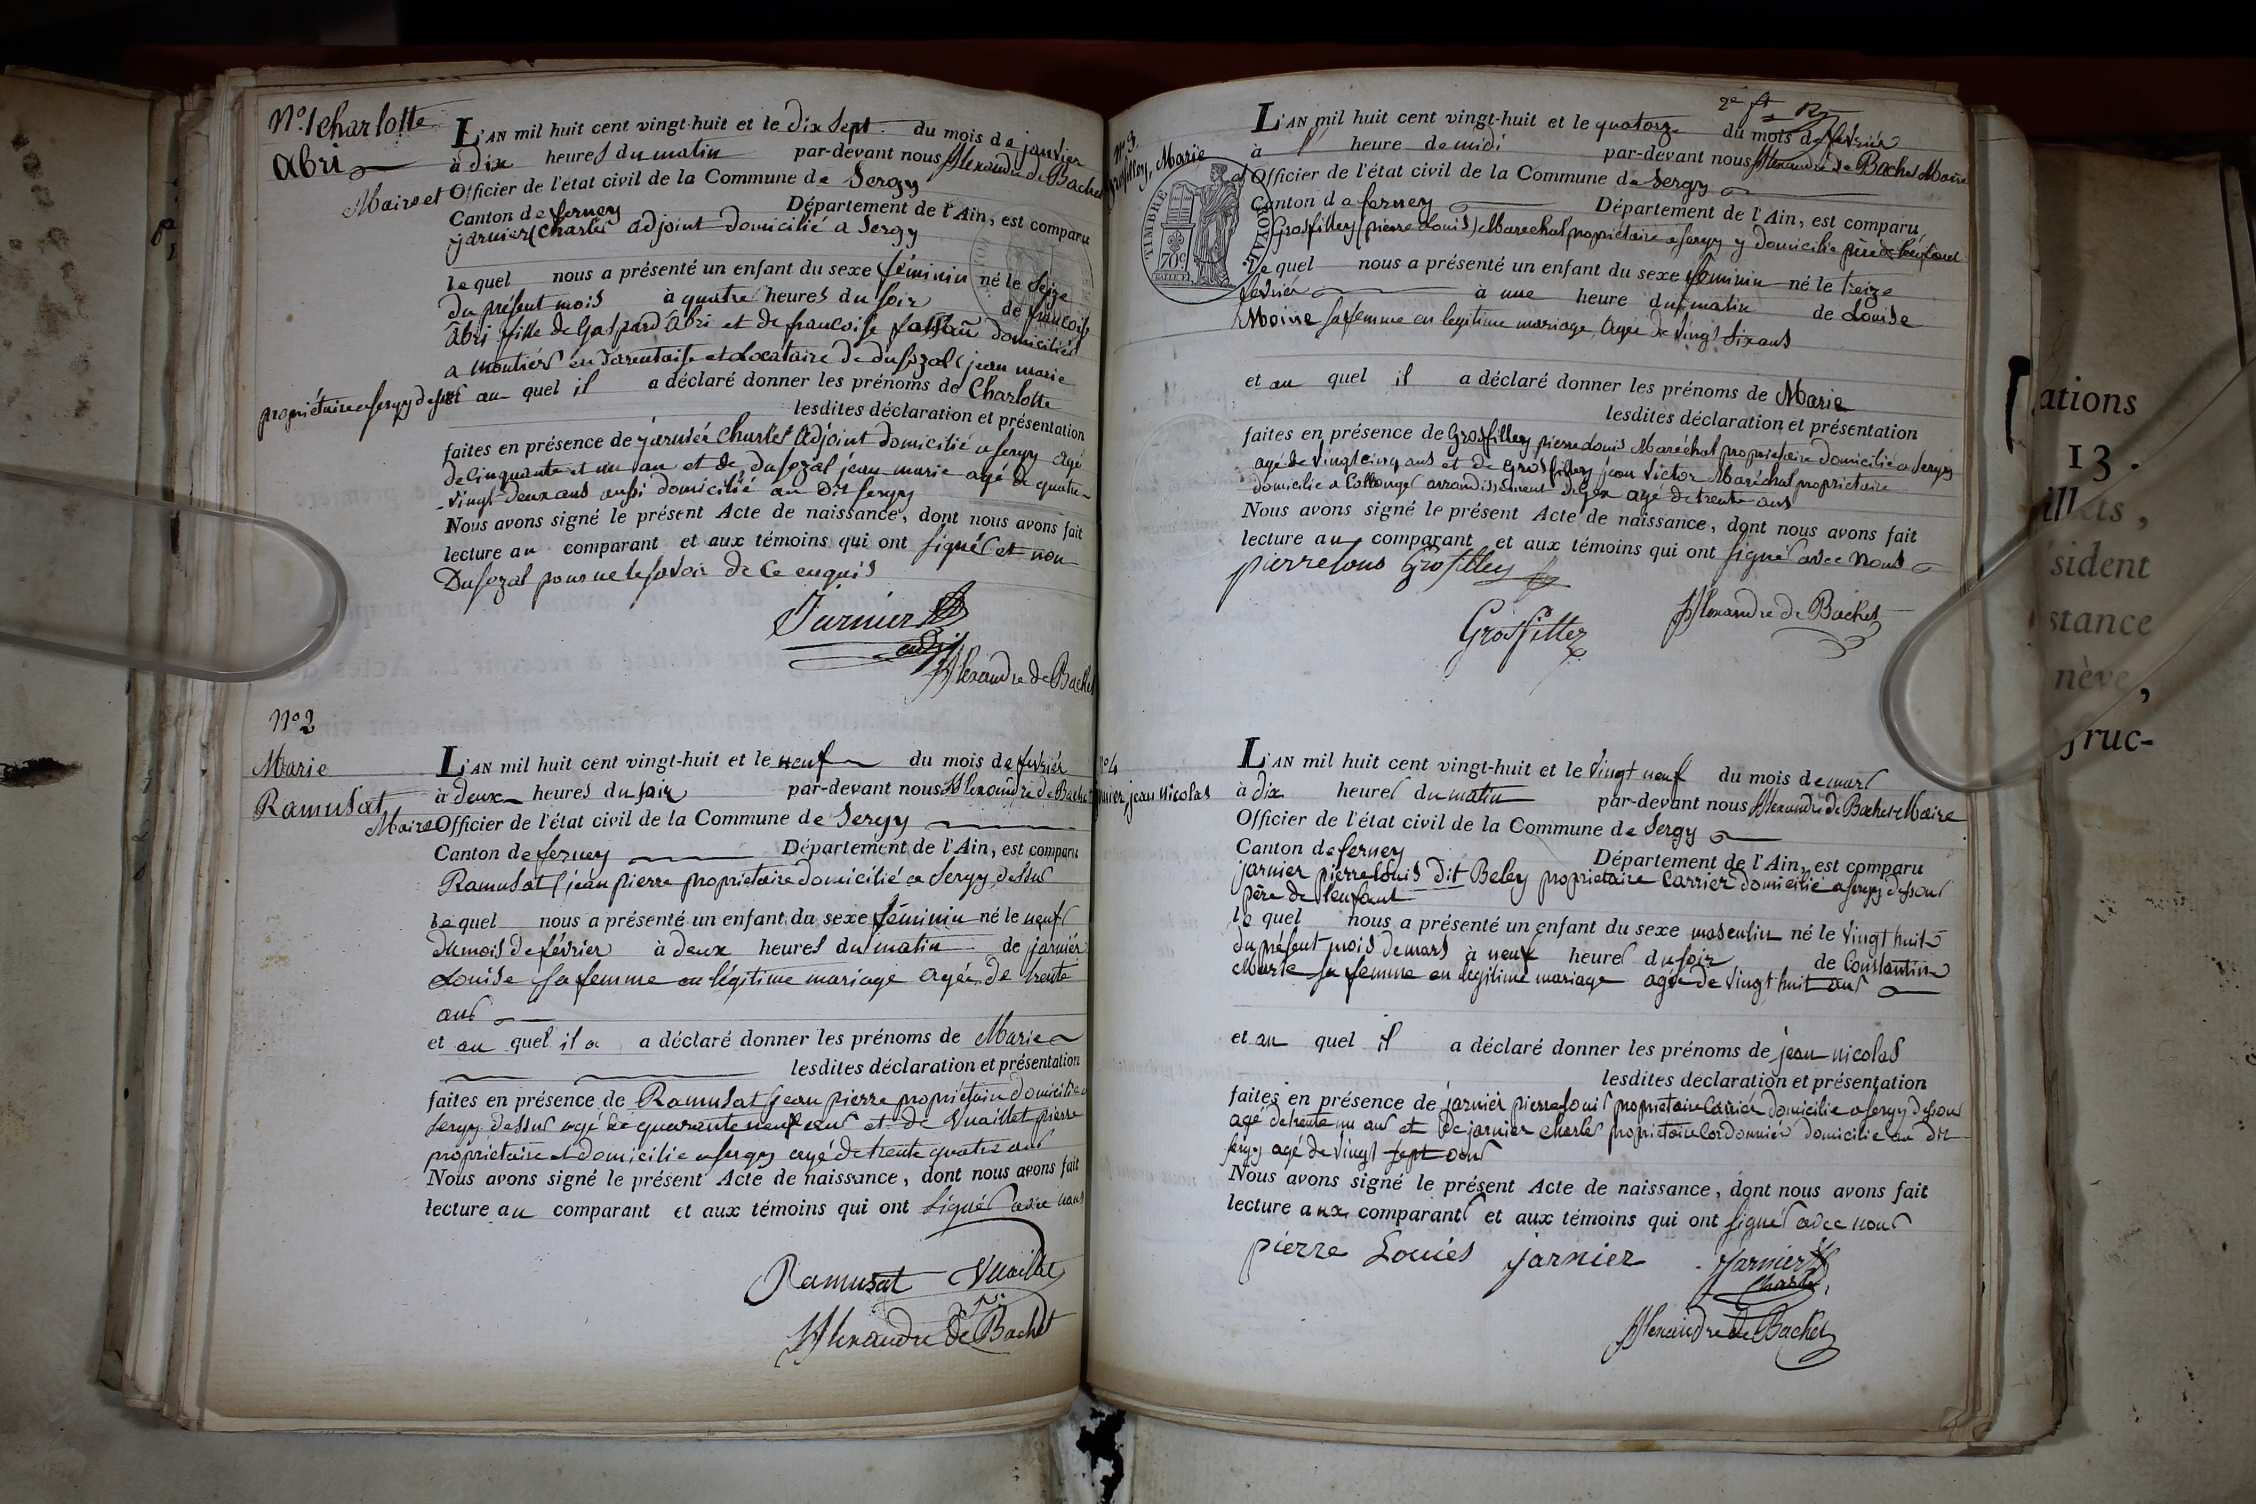 N.º 1 Charlotte
Abri
L'AN mil huit cent vingt-huit et le dix Sept du mois de janvier
à dix heures du matin par-devant nous Alexandre de Bachet
Maire et Officier de l'état civil de la Commune de Sergy
Canton de ferney Département de l'Ain, est comparu
jarnier (Charles adjoint domicilié a Sergy
le quel nous a présenté un enfant du sexe féminin né le Seize
du présent mois à quatre heures du soir de francoise
Abri fille de Gaspard Abri et de francoise domiciliés
a Moutiers en Tarentaise et Locataire de dusozal (jean marie
propriétaire a sergy dessus et au quel il a déclaré donner les prénoms de Charlotte
lesdites déclaration et présentation
faites en présence de jarnier Charles Adjoint domicilié a sergy agé
de Cinquante et un an et de dusozal jean marie agé de quatre-
-vingt-deux ans aussi domicilié au Dit Sergy
Nous avons signé le présent Acte de naissance, dont nous avons fait
lecture au comparant et aux témoins qui ont signés et non
Dusozal pour ne le savoir de Ce enquis
Jarnier
adj
Alexandre de Bachet
N.º 2
Marie
Ramusat
L'AN mil huit cent vingt-huit et le neuf du mois de février
à deux heures du soir par-devant nous Alexandre de Bachet
Maire Officier de l'état civil de la Commune de Sergy
Canton de ferney Département de l'Ain, est comparu
Ramusat (jean pierre propriétaire domicilié a Sergy dessus
le quel nous a présenté un enfant du sexe féminin né le neuf
du mois de février à deux heures du matin de jarnier
Louise sa femme en légitime mariage agée de trente
ans
et au quel il a a déclaré donner les prénoms de Marie
lesdites déclaration et présentation
faites en présence de Ramusat (jean pierre propriétaire domicilié a
Sergy dessus agé de quarente neuf ans et de Vuaillet pierre
propriétaire et domicilie a sergy agé de trente quatre ans
Nous avons signé le présent Acte de naissance, dont nous avons fait
lecture au comparant et aux témoins qui ont Signés avec nous
Ramusat Vuaillat
Alexandre de Bachet
2e ft
N.º 3.
Grosfilley, Marie
TIMBRE ROYAL
70c
L'AN mil huit cent vingt-huit et le quatorze du mois de février
à 1 heure de midi par-devant nous Alexandre de Bachet Maire
et Officier de l'état civil de la Commune de Sergy
Canton de ferney Département de l'Ain, est comparu,
Grosfilley (pierre Louis) Marechal propriétaire a sergy y domicilie père de lenfant
le quel nous a présenté un enfant du sexe féminin né le treize
février à une heure du matin de Louise
Moine sa femme en legitime mariage, Agée de vingt Six ans
et au quel il a déclaré donner les prénoms de Marie
lesdites déclaration et présentation
faites en présence de Grosfilley pierre Louis Maréchal propriétaire domicilié a Sergy
agé de vingt cinq ans et de Grosfilley jean Victor Maréchal propriétaire
domicilie a Collonges arrondissement de Gex agé de trente ans
Nous avons signé le présent Acte de naissance, dont nous avons fait
lecture au comparant et aux témoins qui ont signés avec Nous
pierre lous Grosfilley
Grosfilley
Alexandre de Bachet
N.º 4
jarnier jean Nicolas
L'AN mil huit cent vingt-huit et le Vingt neuf du mois de mars
à dix heures du matin par-devant nous Alexandre de Bachet Maire
Officier de l'état civil de la Commune de Sergy
Canton de ferney Département de l'Ain, est comparu
jarnier pierre Louis Dit Beley propriétaire Carrier domicilié a sergy dessous
père de lenfant
le quel nous a présenté un enfant du sexe masculin né le Vingt huit
du présent mois de mars à neuf heures du soir de Constantin
Marie sa femme en legitime mariage agée de vingt huit ans
et au quel il a déclaré donner les prénoms de jean nicolas
lesdites déclaration et présentation
faites en présence de jarnier pierre Louis propriétaire Carrier domicilie a sergy dessous
agé de trente un ans et de jarnier charles propriétaire Cordonnier domicilie au dit
sergy agé de vingt sept ans
Nous avons signé le présent Acte de naissance, dont nous avons fait
lecture aux comparants et aux témoins qui ont signés avec nous
pierre Louiés jarnier Jarnier
Charles
Alexandre de Bachet
ations
13.
sident
stance
nève,
fruc-